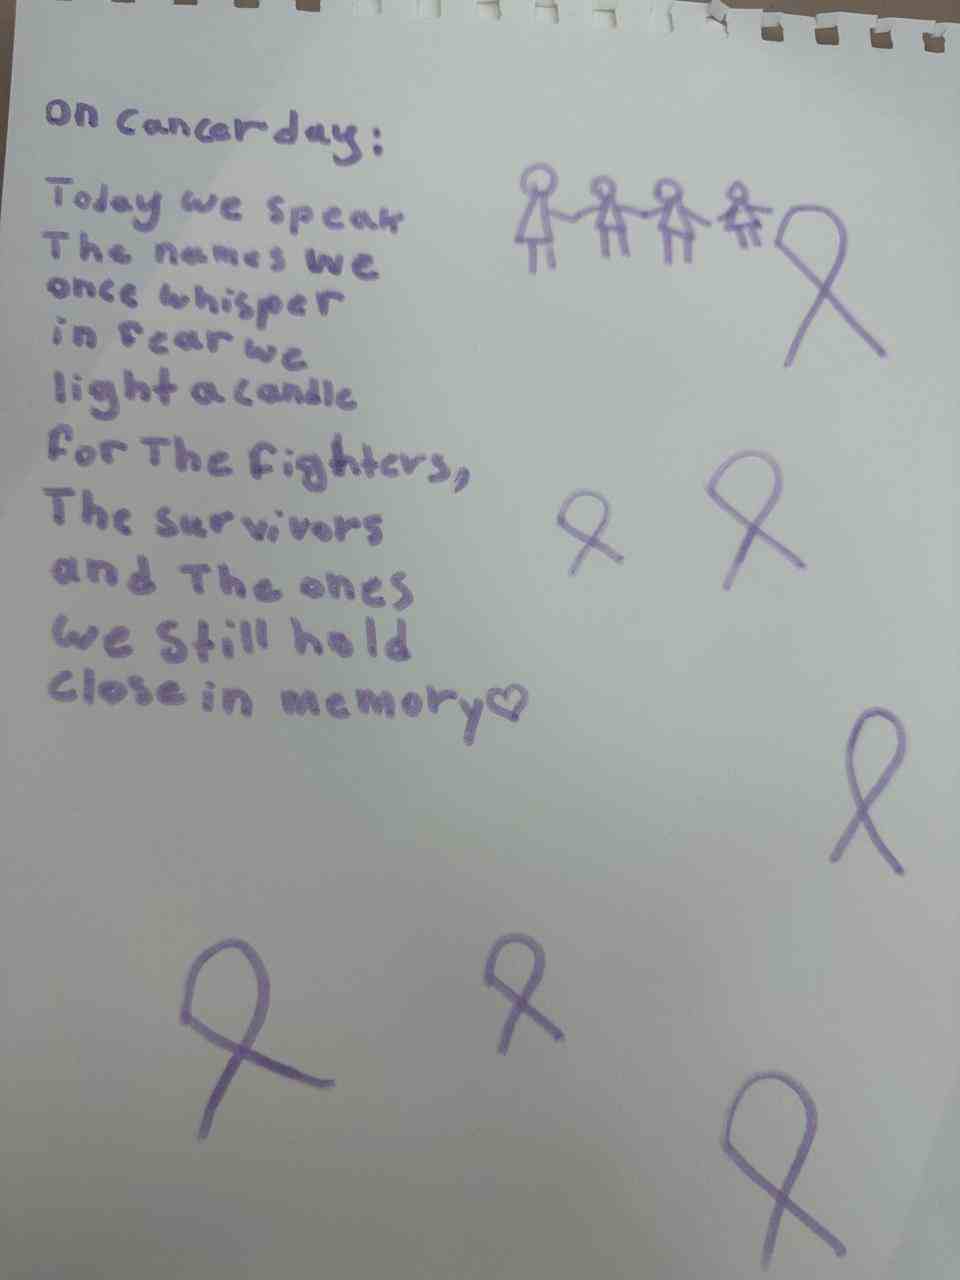 on cancer day:
Today we speak
The names we
once whisper
in fear we
light a candle
for The fighters,
The survivors
and The ones
we still hold
close in memory♡